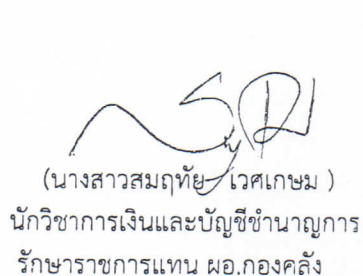 (นางสาวสมฤทัย เวศเกษม )
นักวิชาการเงินและบัญชีชำนาญการ
รักษาราชการแทน ผอ.กองคลัง